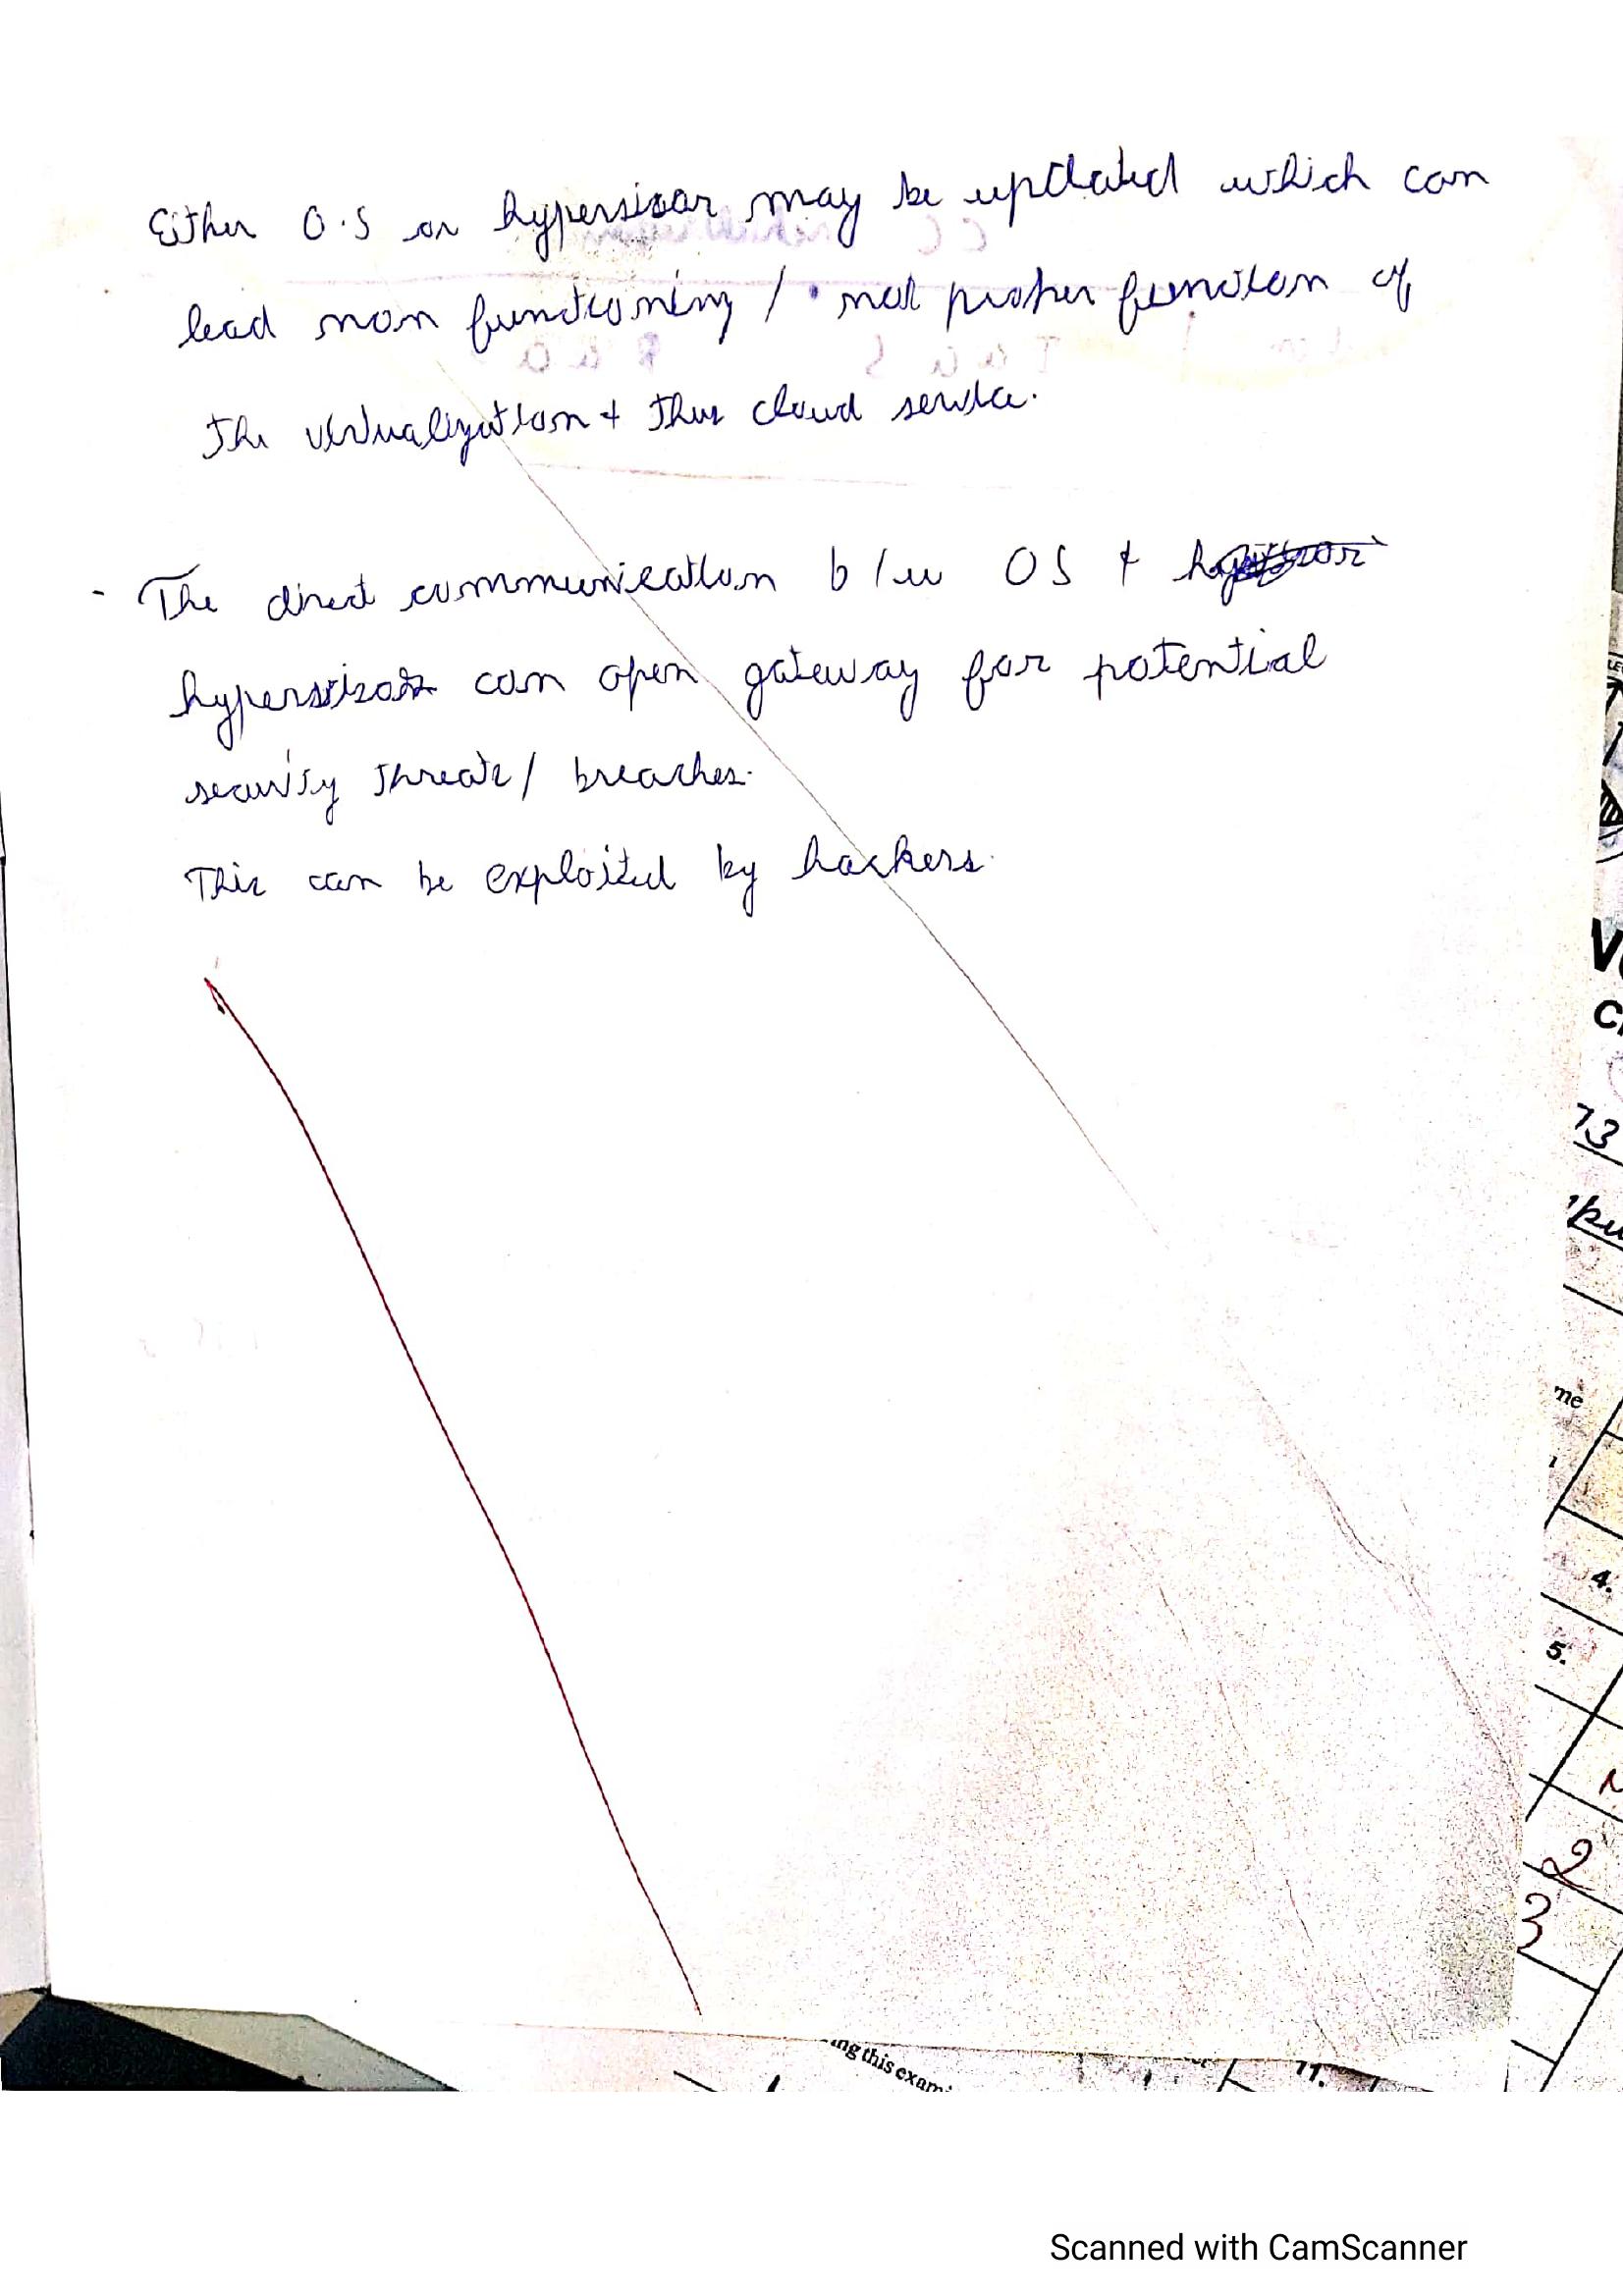 Either O.S or hypervisor may be updated which can
lead non functioning / not proper function of
the virtualization & thus cloud service.
- The direct communication b/w OS &
hypervisor can open gateway for potential
security threats / breaches.
This can be exploited by hackers.
73
me
4.
5.
2
3
ing this exam
11.
Scanned with CamScanner